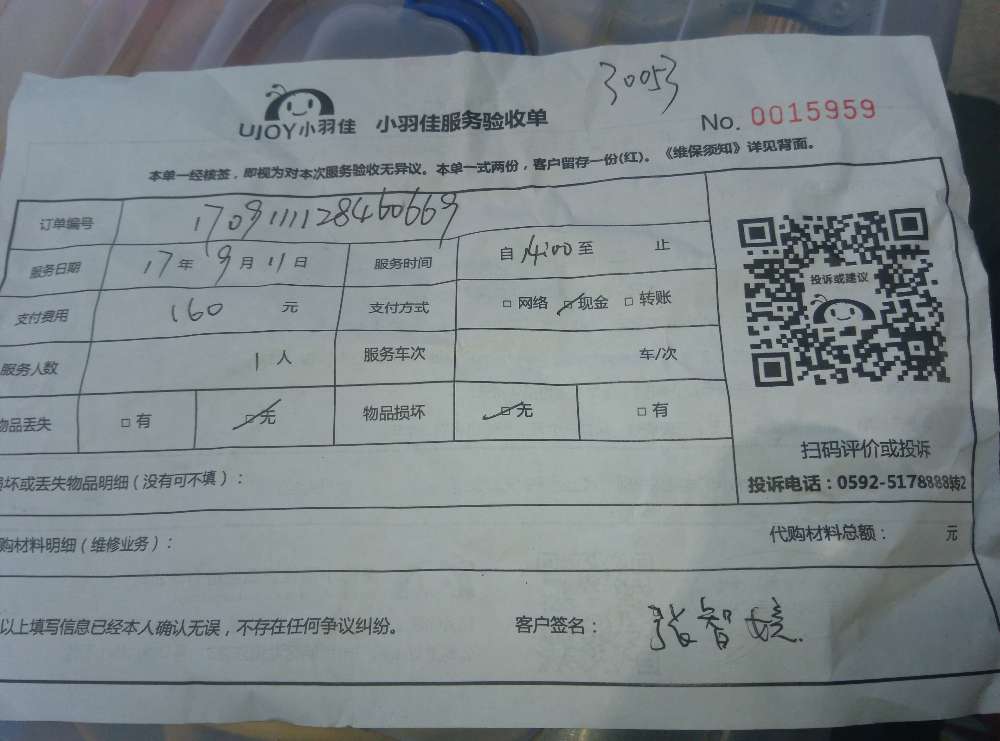 30053
UJOY小羽佳 小羽佳服务验收单 No. 0015959
本单一经核签，即视为对本次服务验收无异议。本单一式两份，客户留存一份(红)。《维保须知》详见背面。
订单编号 1709111128460669
服务日期 17年9月11日 服务时间 自14:00至 止
支付费用 160 元 支付方式 □网络 ☑现金 □转账
服务人数 1人 服务车次 车/次
物品丢失 □有 ☑无 物品损坏 ☑无 □有
投诉或建议
扫码评价或投诉
投诉电话：0592-5178888转2
坏或丢失物品明细（没有可不填）：
购材料明细（维修业务）： 代购材料总额： 元
以上填写信息已经本人确认无误，不存在任何争议纠纷。 客户签名： 张智娆